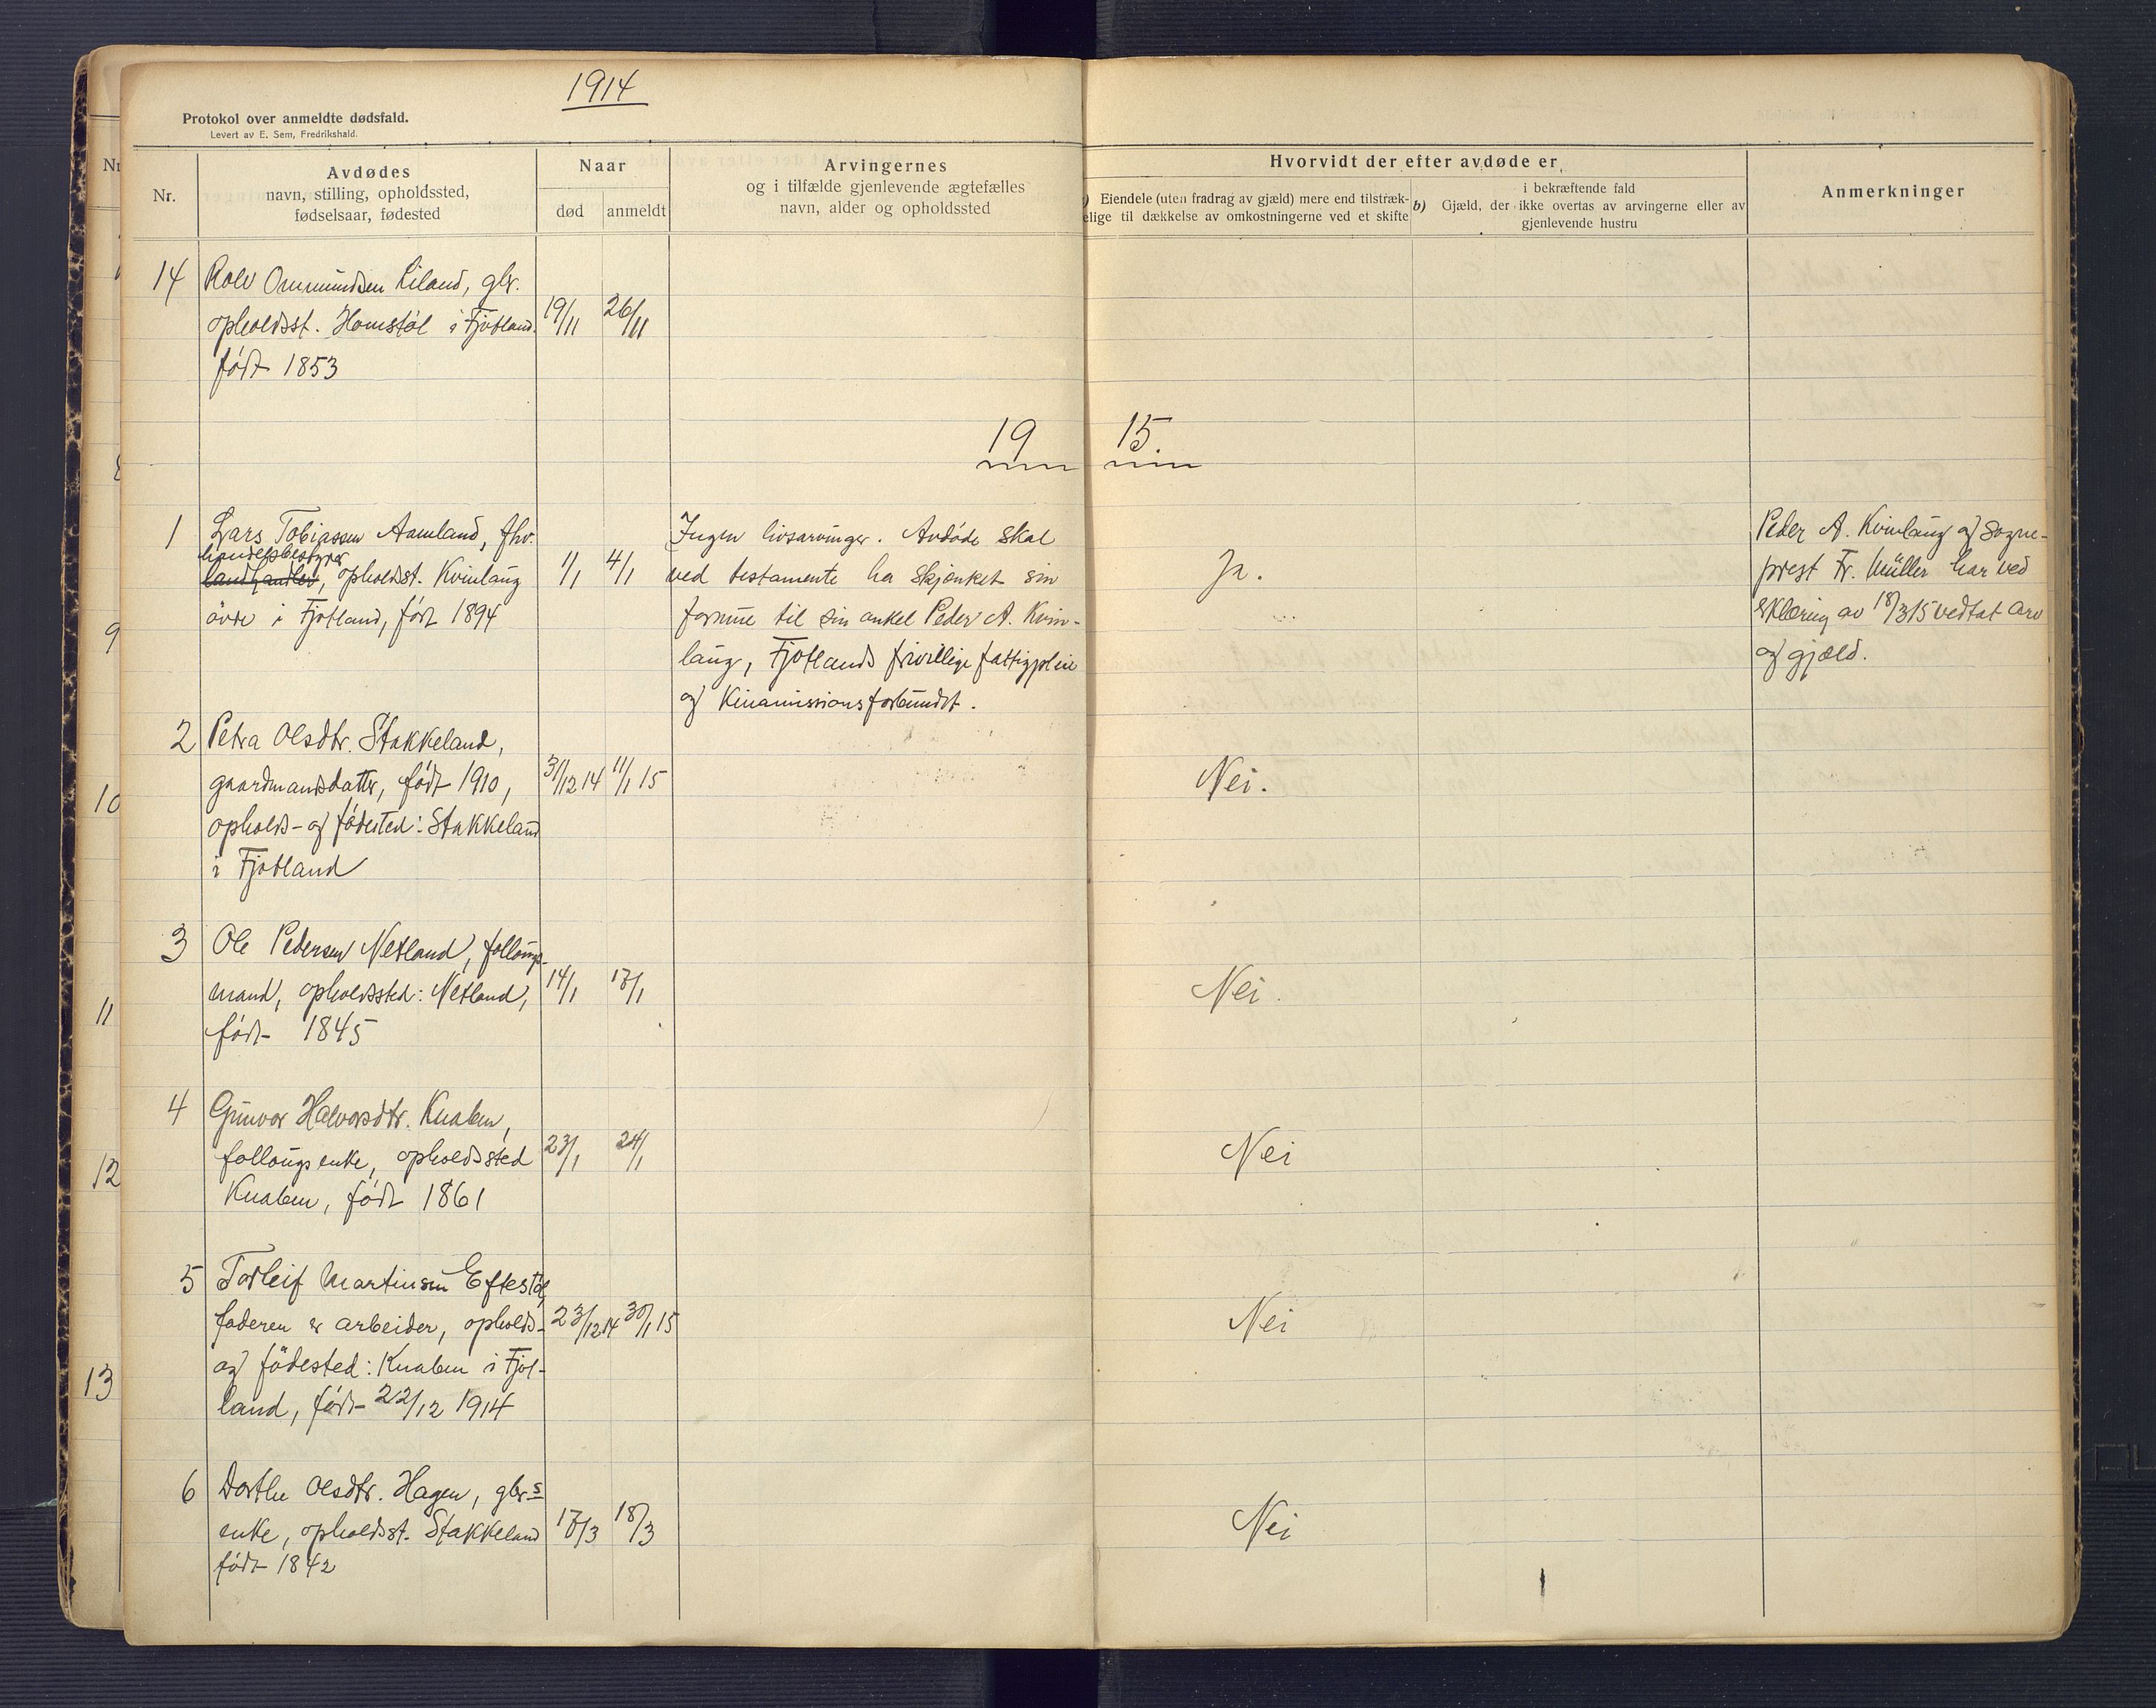 1914
Protokol over anmeldte dødsfald.
Levert av E. Sem, Fredrikshald.
Nr.
Avdødes
navn, stilling, opholdssted,
fødselsaar, fødested
Naar
død
anmeldt
Arvingernes
og i tilfælde gjenlevende ægtefælles
navn, alder og opholdssted
Hvorvidt der efter avdøde er
) Eiendele (uten fradrag av gjæld) mere end tilstræk-
elige til dækkelse av omkostningerne ved et skifte
b)
i bekræftende fald
Gjæld, der ikke overtas av arvingerne eller av
gjenlevende hustru
Anmerkninger
14
Rolv Ommundsen Liland, gbr.
opholdsst. Homstøl i Fjotland.
født 1853
19/11
26/11
19 15.
1
Lars Tobiassen Aamland, fhv.
handelsbestyrer
landhandler, opholdst. Kvinlaug
øvre i Fjotland, født 1894
1/1
4/1
Ingen livsarvinger. Avdøde skal
ved testamente ha skjænket sin
formue til sin onkel Peder A. Kvin-
laug, Fjotlands frivillige fattigpleie
og Kinamissionsforbundet.
Ja.
Peder A. Kvinlaug og Sogne-
prest Fr. Müller har ved
erklæring av 18/3 15 vedtat arv
og gjæld.
2
Petra Olsdtr. Stakkeland,
gaardmandsdatter, født 1910,
opholds- og fødested: Stakkeland
i Fjotland
31/12 14
11/1 15
Nei.
3
Ole Pedersen Netland, follaugs-
mand, opholdssted: Netland,
født 1845
14/1
17/1
Nei.
4
Gunvor Halvorsdtr. Knaben,
follaugsenke, opholdssted
Knaben, født 1861
23/1
24/1
Nei
5
Torleif Martinsen Eftestøl,
faderen er arbeider, opholds-
og fødested: Knaben i Fjot-
land, født 22/12 1914
23/12 14
30/1 15
Nei
6
Dorthe Olsdtr. Hagen, gbrs
enke, opholdsst. Stakkeland
født 1842
17/3
18/3
Nei
Nr
9
10
11
12
13